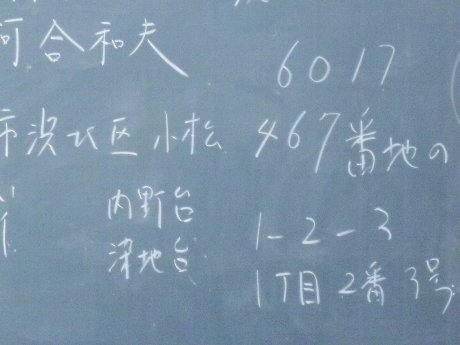 河合和夫 6017
市浜北区小松 467番地の
内野台 1-2-3
染地台 1丁目2番3号